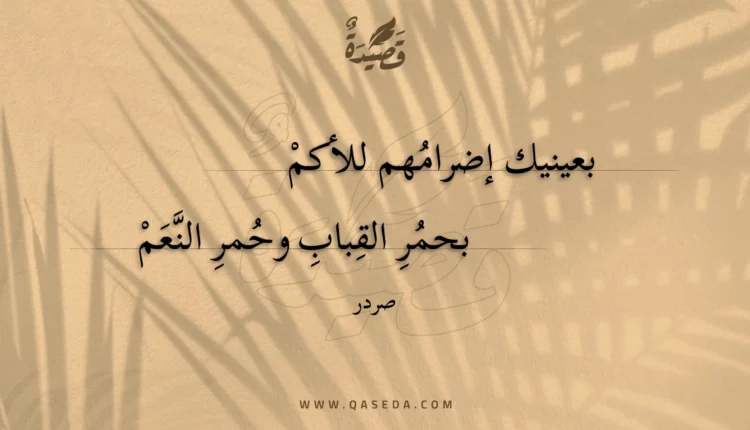 قَصِيْدَةٌ
بعينيك إضرامُهم للأكمْ
بحمُرِ القِبابِ وحُمرِ النَّعَمْ
صردر
WWW.QASEDA.COM